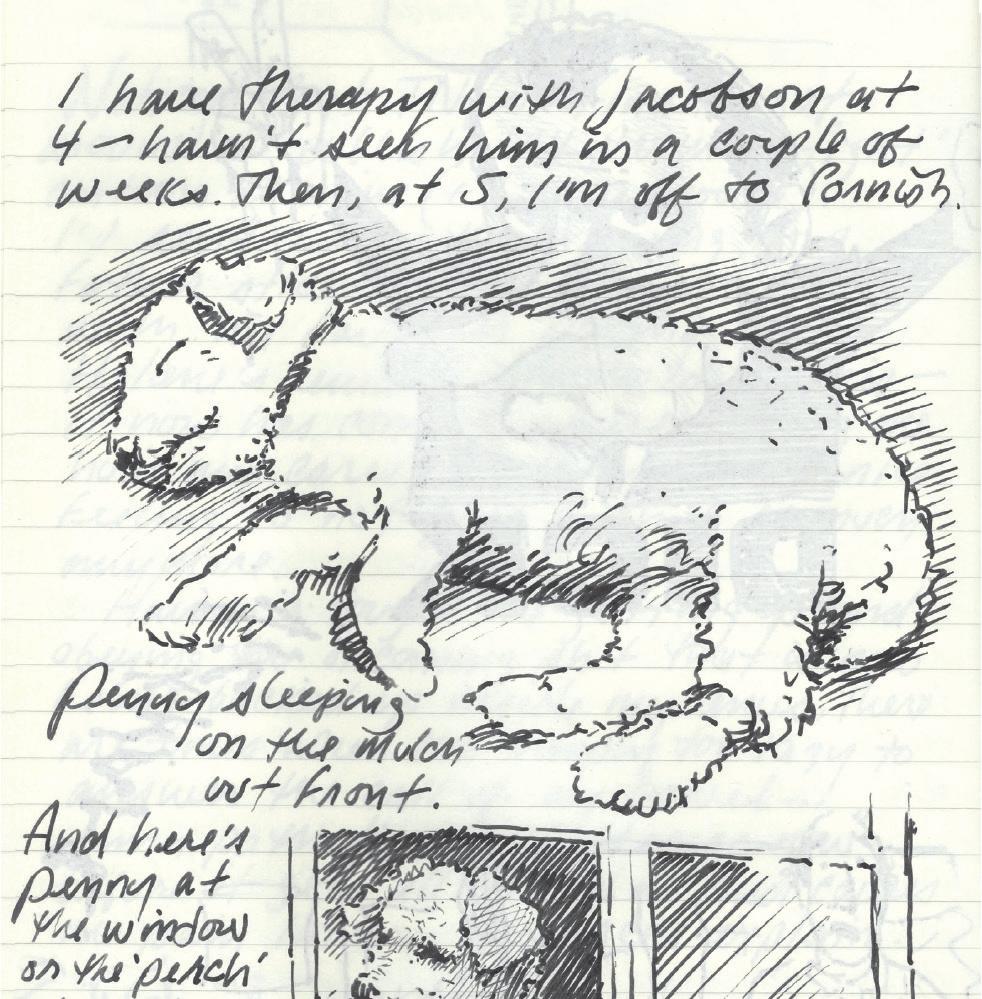 I have therapy with Jacobson at
4 – haven't seen him in a couple of
weeks. Then, at 5, I'm off to Cornish.
Penny sleeping
on the mulch
out front.
And here's
penny at
the window
on the 'perch'